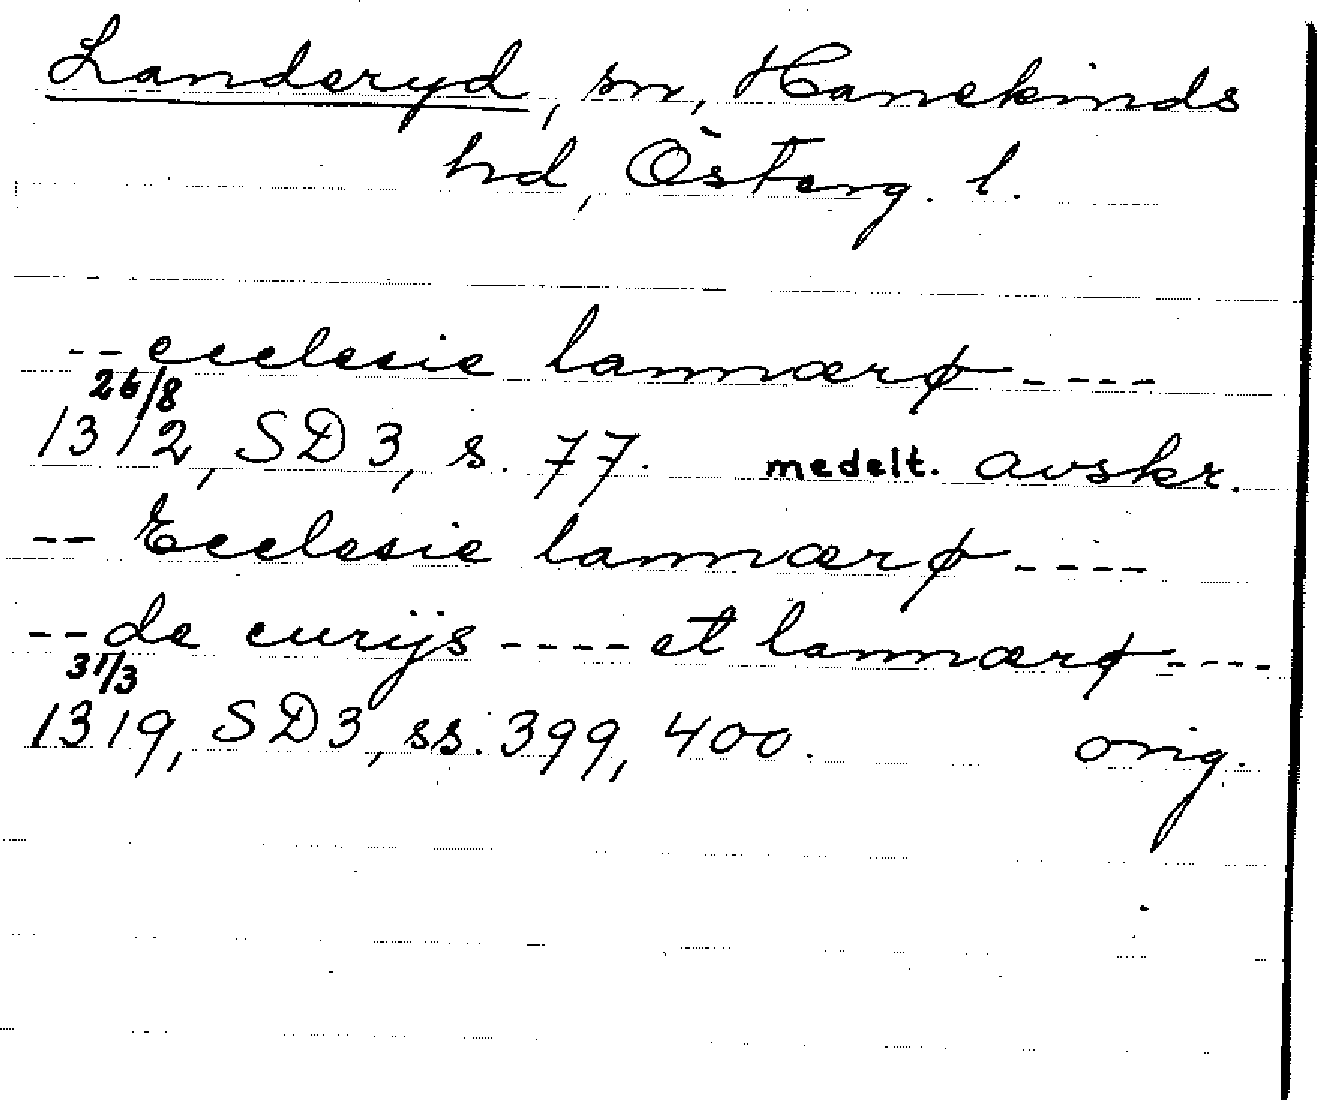 Landeryd, sn, Hanekinds
hd, Österg. l.
-- ecclesie lannærø ----
26/8
1312, SD 3, s. 77. medelt. avskr.
-- Ecclesie lannærø ----
-- de curijs ---- et lannærø ----
31/3
1319, SD 3, ss. 399, 400. orig.